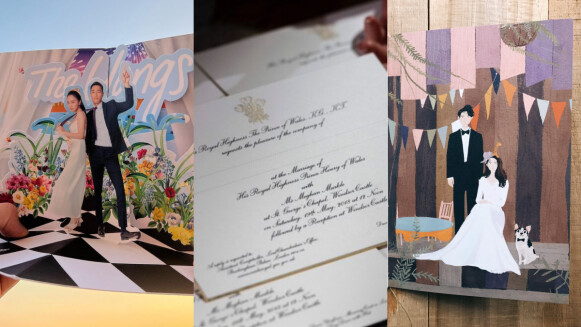 The Wongs
Royal Highness The Prince of Wales, K.G., K.T.
requests the pleasure of the company of
at the Marriage of
His Royal Highness Prince Henry of Wales
with
Ms. Meghan Markle
at St. George's Chapel, Windsor Castle
on Saturday, 19th May, 2018 at 12 Noon
followed by a Reception at Windsor Castle